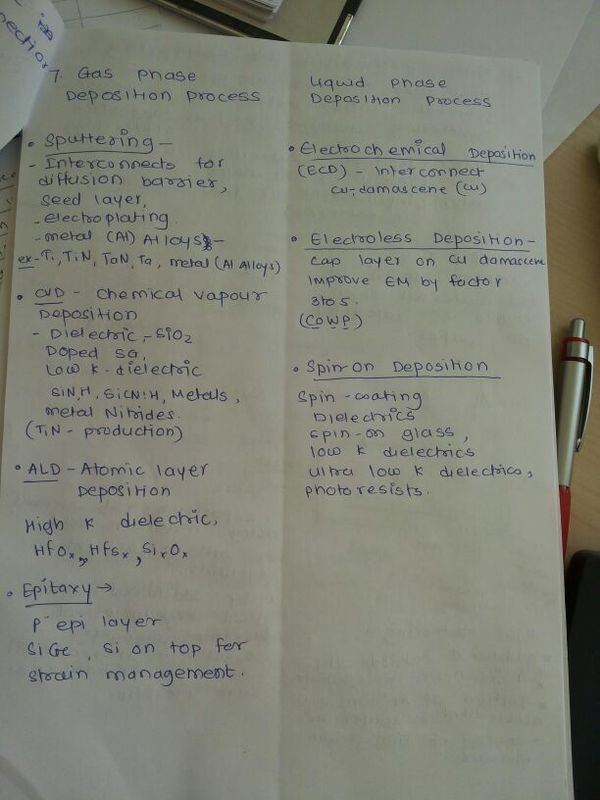 7. Gas phase
Deposition process
• Sputtering –
- Interconnects for
diffusion barrier,
seed layer,
- electroplating.
- metal (Al) Alloys –
ex - Ti, TiN, TaN, Ta, metal (Al Alloys)
• CVD - chemical vapour
Deposition
- Dielectric, - SiO2
Doped SG,
low K - dielectric
SiN,H, SiCN:H, Metals,
metal Nitrides.
(TiN - production)
• ALD - Atomic layer
Deposition
High K dielectric,
HfOx, HfSx, SixOx
• Epitaxy →
P- epi layer
SiGe, Si on top for
strain management.
Liquid phase
Deposition process
• Electrochemical Deposition
(ECD) - Interconnect
cu-damascene (Cu)
• Electroless Deposition -
cap layer on cu damascene
improve EM by factor
3 to 5.
(COWP)
• Spin-on Deposition
Spin-coating
Dielectrics
spin-on glass,
low K dielectrics
ultra low K dielectrics,
photoresists.